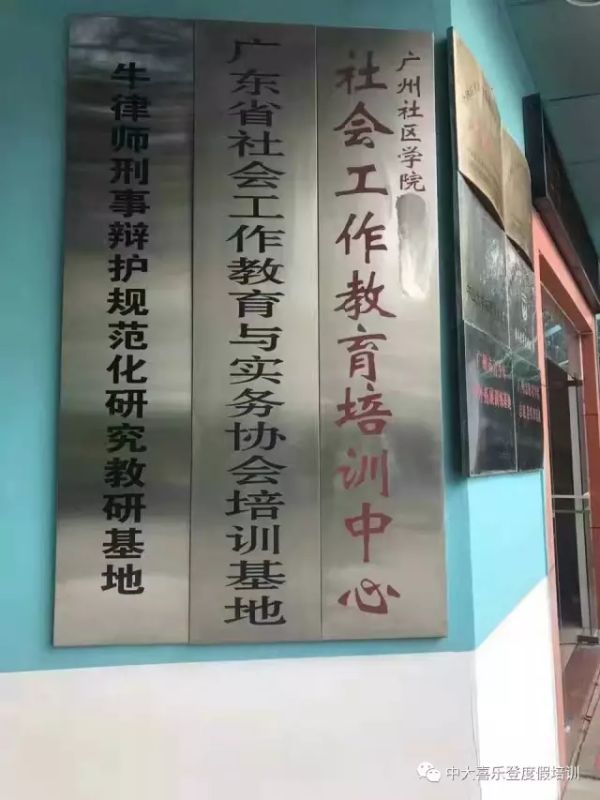 广州社区学院
社会工作教育培训中心
广东省社会工作教育与实务协会培训基地
牛律师刑事辩护规范化研究教研基地
中大喜乐登度假培训